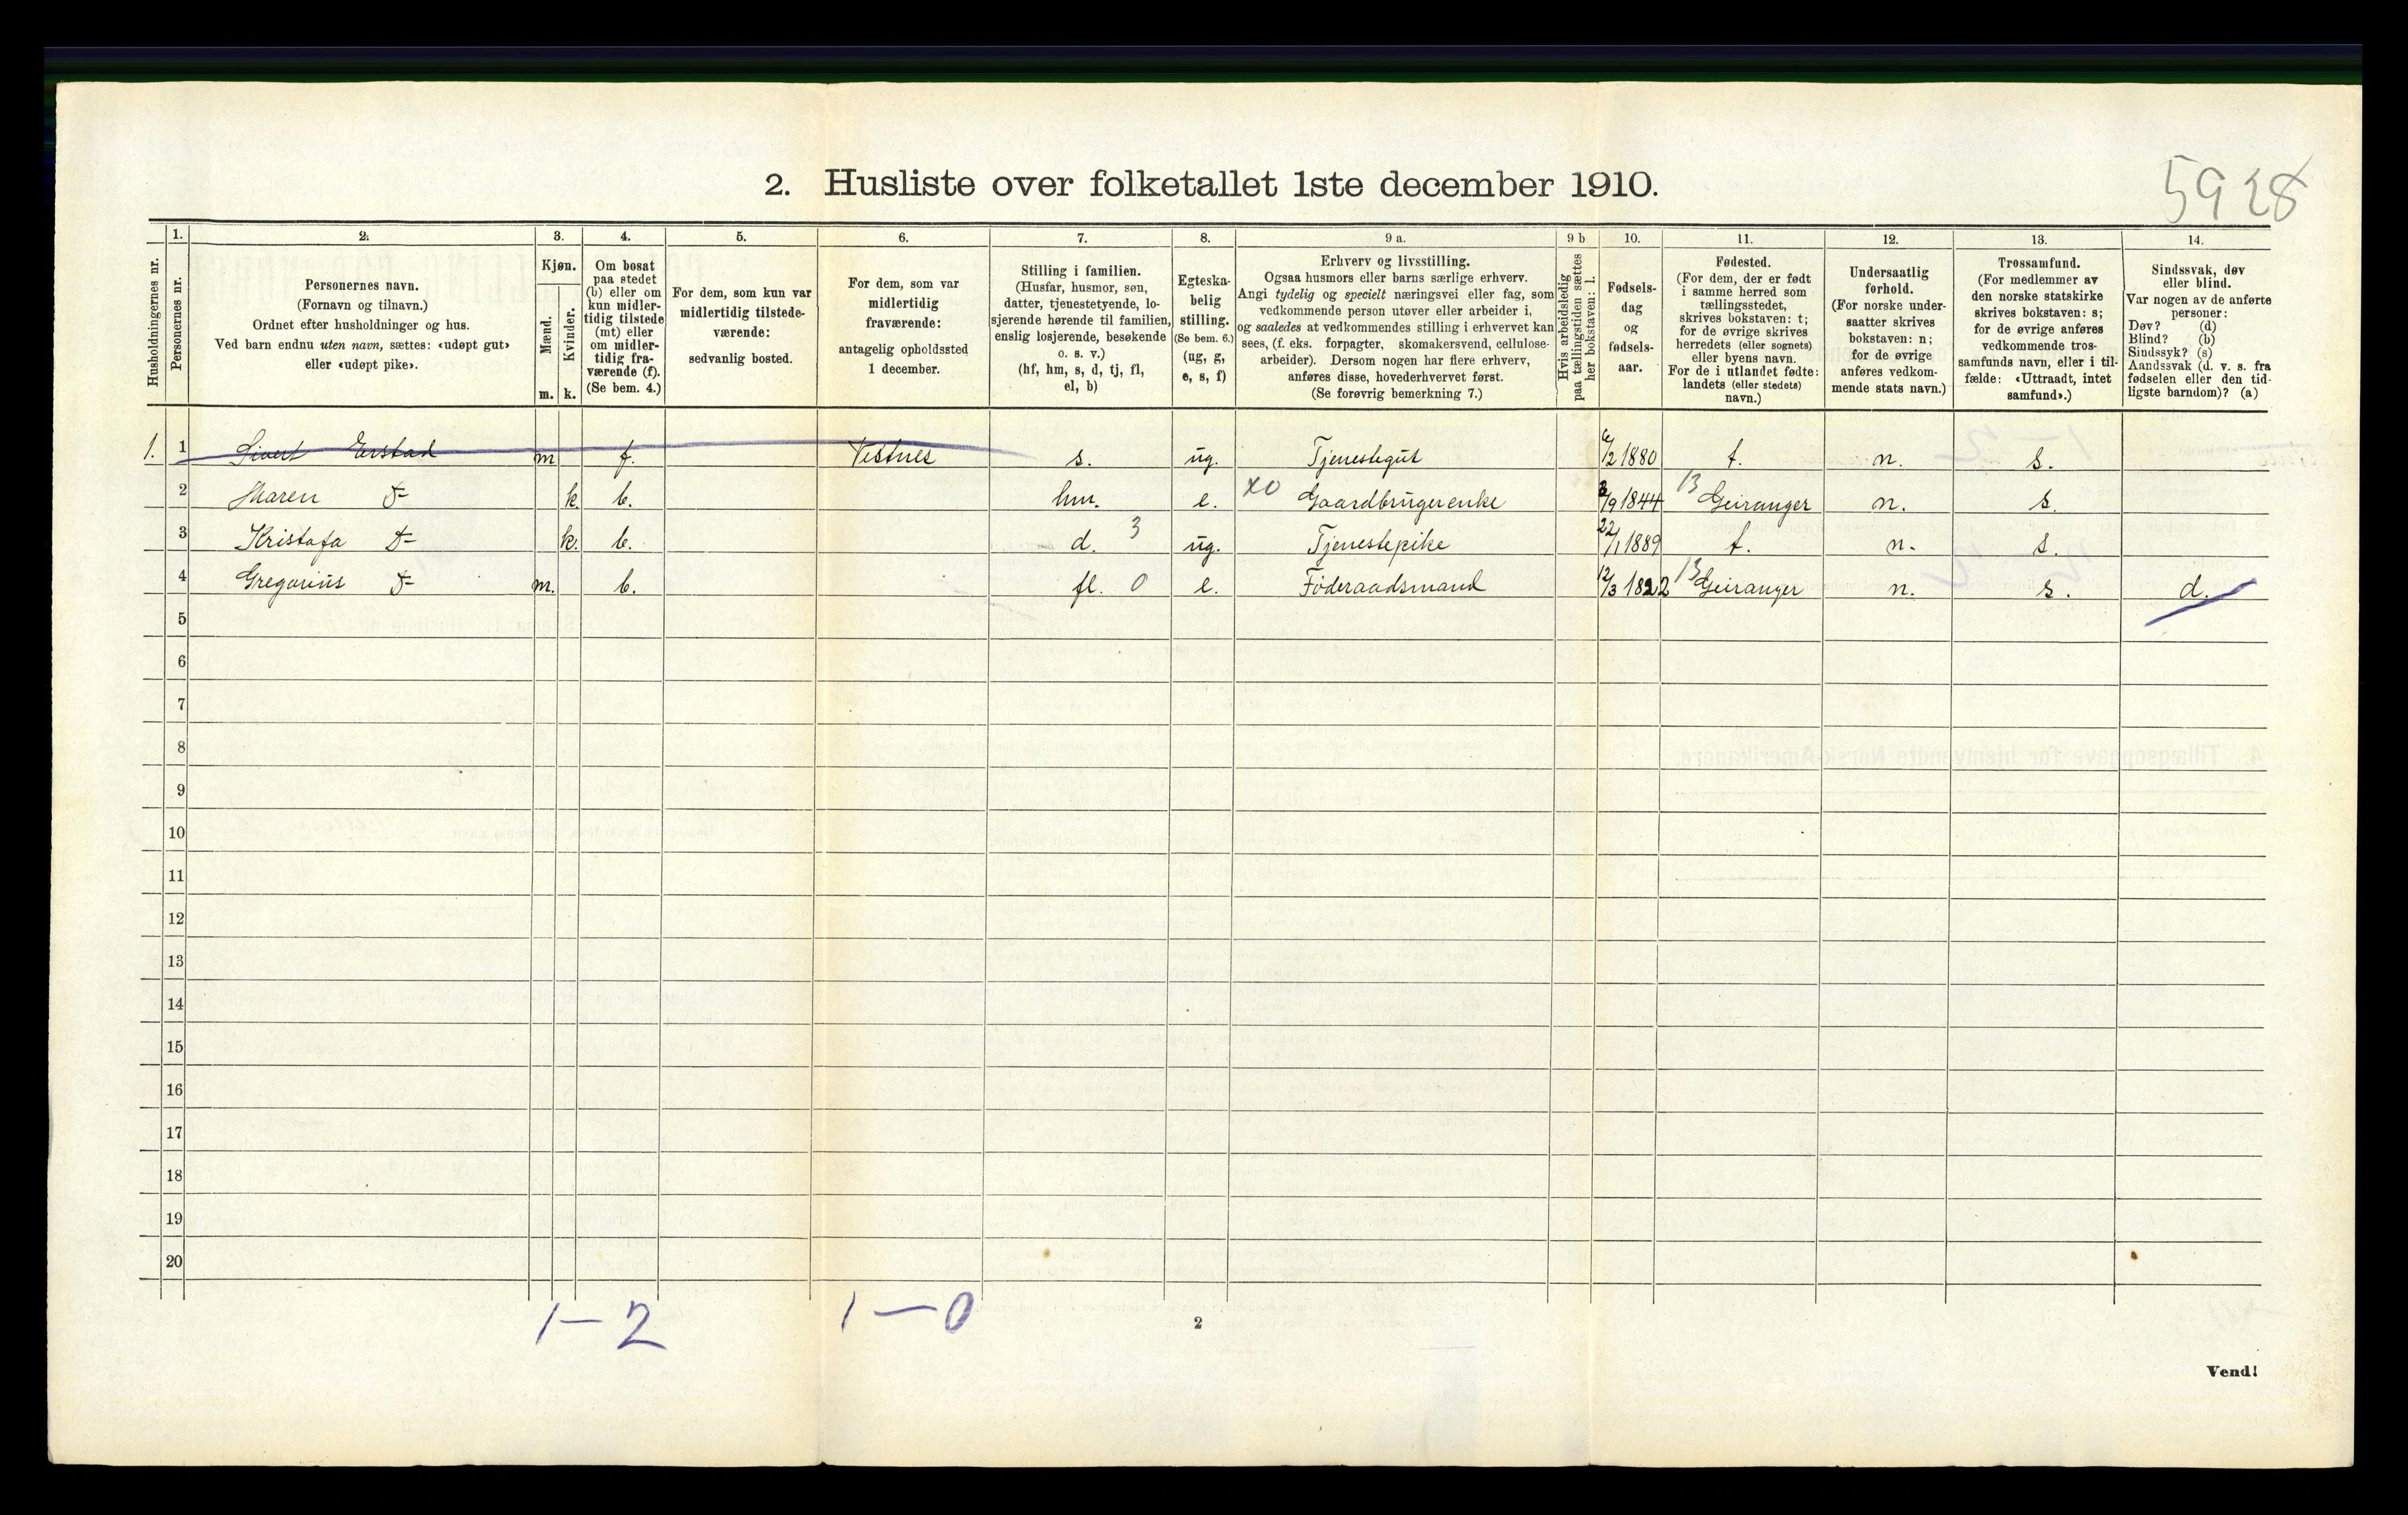 5928
2. Husliste over folketallet 1ste december 1910.
Husholdningernes nr.
1.
Personernes nr.
2.
Personernes navn.
(Fornavn og tilnavn.)
Ordnet efter husholdninger og hus.
Ved barn endnu uten navn, sættes: «udøpt gut»
eller «udøpt pike».
3.
Kjøn.
Mænd.
Kvinder.
m. k.
4.
Om bosat
paa stedet
(b) eller om
kun midler-
tidig tilstede
(mt) eller
om midler-
tidig fra-
værende (f).
(Se bem. 4.)
5.
For dem, som kun var
midlertidig tilstede-
værende:
sedvanlig bosted.
6.
For dem, som var
midlertidig
fraværende:
antagelig opholdssted
1 december.
7.
Stilling i familien.
(Husfar, husmor, søn,
datter, tjenestetyende, lo-
sjerende hørende til familien,
enslig losjerende, besøkende
o. s. v.)
(hf, hm, s, d, tj, fl,
el, b)
8.
Egteska-
belig
stilling.
(Se bem. 6.)
(ug, g,
e, s, f)
9 a.
Erhverv og livsstilling.
Ogsaa husmors eller barns særlige erhverv.
Angi tydelig og specielt næringsvei eller fag, som
vedkommende person utøver eller arbeider i,
og saaledes at vedkommendes stilling i erhvervet kan
sees, (f. eks. forpagter, skomakersvend, cellulose-
arbeider). Dersom nogen har flere erhverv,
anføres disse, hovederhvervet først.
(Se forøvrig bemerkning 7.)
9 b
Hvis arbeidsledig
paa tællingstiden sættes
her bokstaven: l.
10.
Fødsels-
dag
og
fødsels-
aar.
11.
Fødested.
(For dem, der er født
i samme herred som
tællingsstedet,
skrives bokstaven: t;
for de øvrige skrives
herredets (eller sognets)
eller byens navn.
For de i utlandet fødte:
landets (eller stedets)
navn.)
12.
Undersaatlig
forhold.
(For norske under-
saatter skrives
bokstaven: n;
for de øvrige
anføres vedkom-
mende stats navn.)
13.
Trossamfund.
(For medlemmer av
den norske statskirke
skrives bokstaven: s;
for de øvrige anføres
vedkommende tros-
samfunds navn, eller i til-
fælde: «Uttraadt, intet
samfund».)
14.
Sindssvak, døv
eller blind.
Var nogen av de anførte
personer:
Døv? (d)
Blind? (b)
Sindssyk? (s)
Aandssvak (d. v. s. fra
fødselen eller den tid-
ligste barndom)? (a)
1. 1 Sivert Erstad m f. Vestnes s. ug. Tjenestegut 6/2 1880 t. n. s.
2 Maren D- k. b. hm. e. X0 Gaardbrugerenke 3/9 1844 13 Geiranger n. s.
3 Kristofa D- k. b. d. 3 ug. Tjenestepike 22/1 1889 t. n. s.
4 Gregorius D- m. b. fl. 0 e. Føderaadsmand 12/3 1822 13 Geiranger n. s. d.
5
6
7
8
9
10
11
12
13
14
15
16
17
18
19
20
1 — 2 1 — 0
2
Vend!